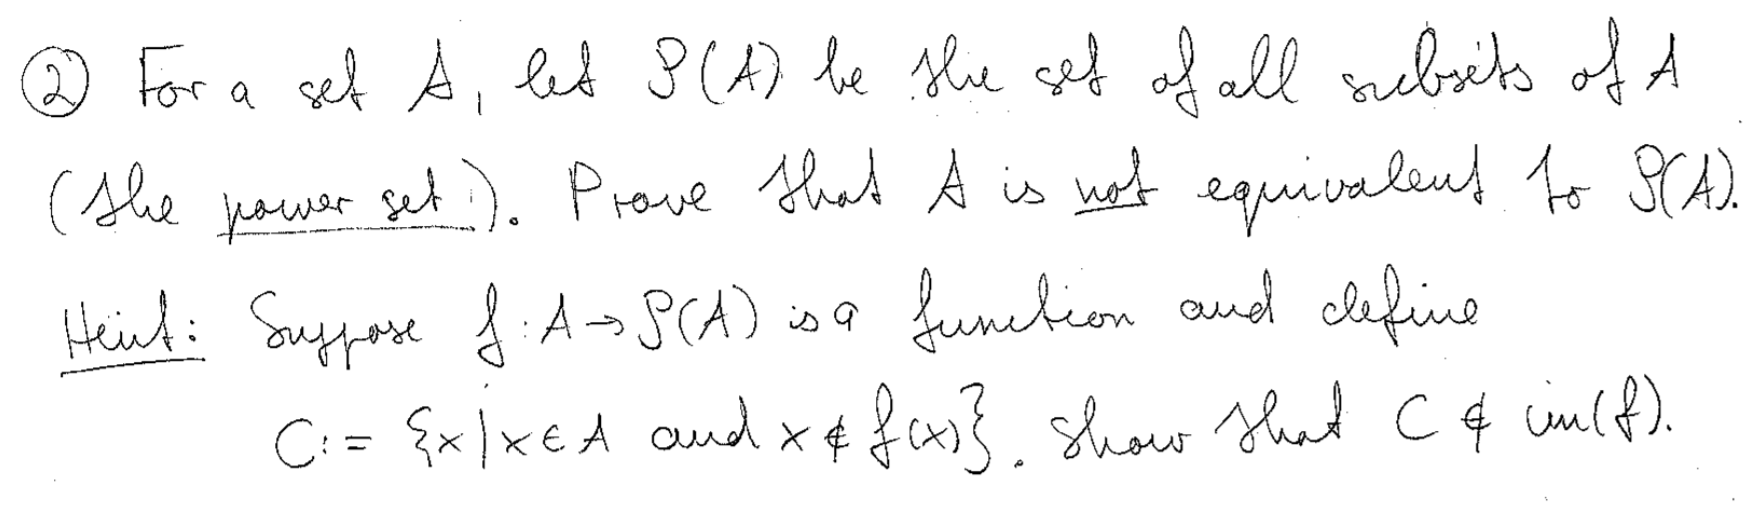 ② For a set A, let P(A) be the set of all subsets of A
(the power set). Prove that A is not equivalent to P(A).
Hint: Suppose f: A → P(A) is a function and define
C := {x | x ∈ A and x ∉ f(x)}. Show that C ∉ im(f).